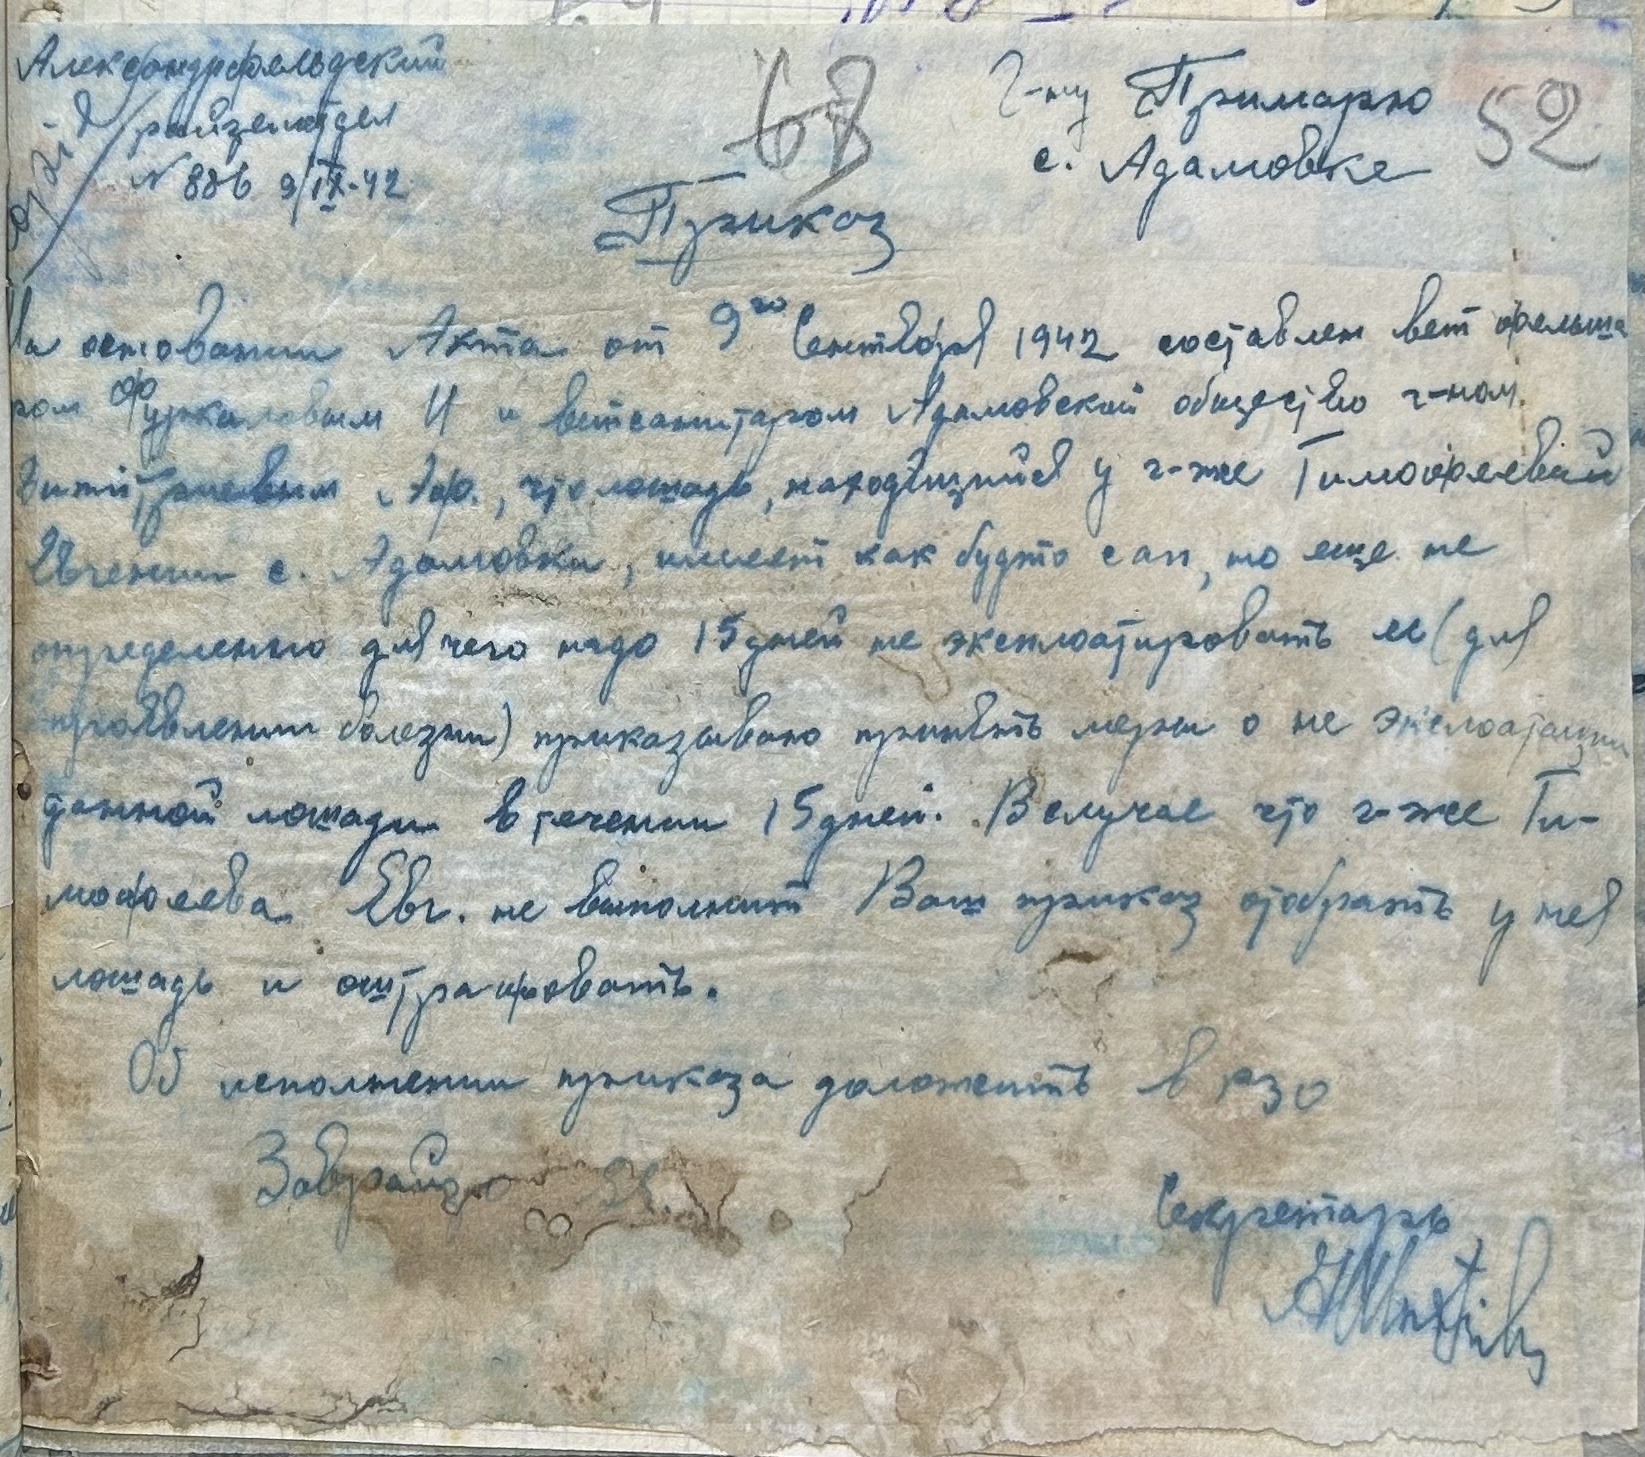 Александрфельдский
райземотдел
N 886 9/IX-42
68
Г-ну Примарю
с. Адамовке
52
Приказ
На основании Акта от 9го Сентября 1942 составлен вет фельша
ром Фуркаловым И и ветсанитаром Адамовской общество г-ном
Димитриевым Аф., что лошадь, находящийся у г-же Тимофеевой
Евгении с. Адамовки, имеет как будто сап, но еще не
определенно для чего надо 15 дней не эксплоатировать ее (для
проявлении болезни) приказываю принять меры о не эксплоатации
данной лошади в течении 15 дней. В случае что г-же Ти-
мофеева Евг. не выполнит Ваш приказ отобрать у ней
лошадь и оштрафовать.
Об исполнении приказа доложить в рзо
Заврайзо
Секретарь